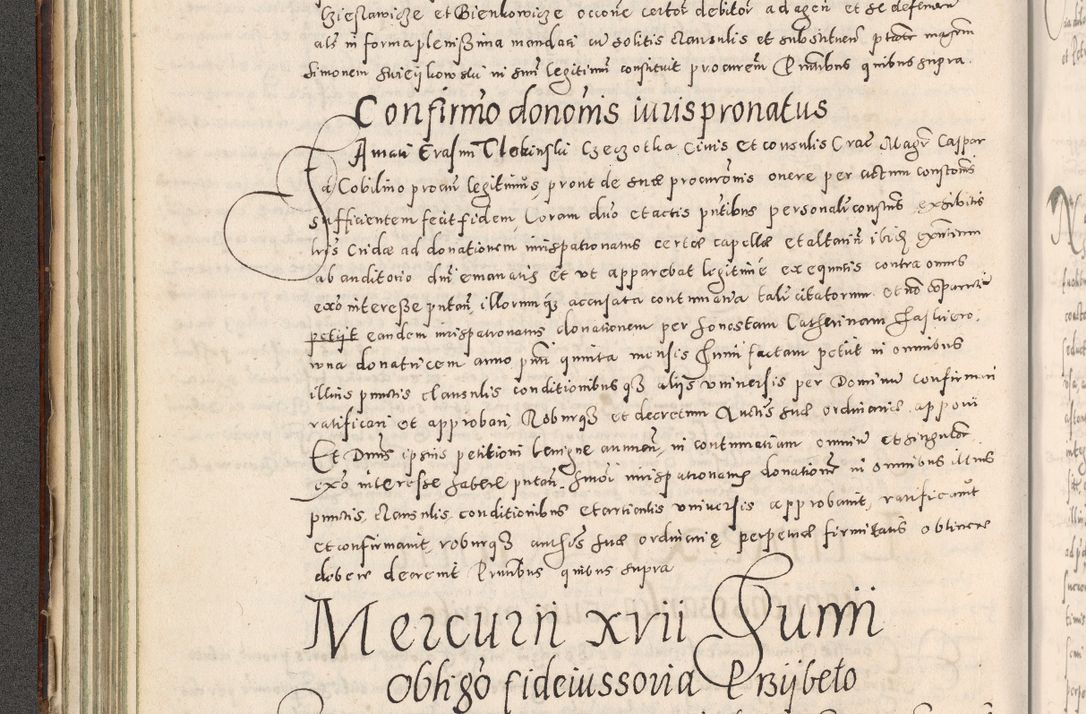 et Bienkowicze occone certor debitor ad agen et se defenden
als in forma plenissima mandati cu solitis clausulis et substituen
Simonem in suu legitimu constituit procurem Pntibus quibus supra.
Confirmo donomis iuris pronatus
Famati Erasmi Tlokinski Czeczotka Civis et consulis Crac Magr Caspar
a Cobilino procur legitimus, prout de suae procuronis onere per actum constans
sufficientem fecit fidem Coram duo et actis pntibus personalr constns exhibitis
lris Cridae ad donationem iurispatronatus certae capellae et altarm ibide
ab auditorio dni emanatis et ut apparebat legitime exequutis contra omnes
exo interesse putan, illorumqz accusata contumatia talr citatorum et no
petijt eandem iurispatronatus donationem per honestam Catherinam
donatricem anno pnti quinta mensis Junii factam petiit in omnibus
illius punctis clausulis conditionibusqz alijs universis per Dominu confirmari
ratificari et approbari, Roburqz et decretum Auctis suae ordinariae apponi
Et Dnus ipsius petitioni benigne annuen, in contumatiam omniu et singulor
exo interesse habere putan. Hmoi iurispatronatus donatione in omnibus illius
punctis, clausulis, conditionibus et articulis universis approbavit, ratificavit
et confirmavit, roburqz aucthis suae ordinarie perpetuae firmitatis obtinere
debere decrevit Pruntibus quibus supra
Mercurii xvii Junii
Obligo fideiussoria Przijbelo